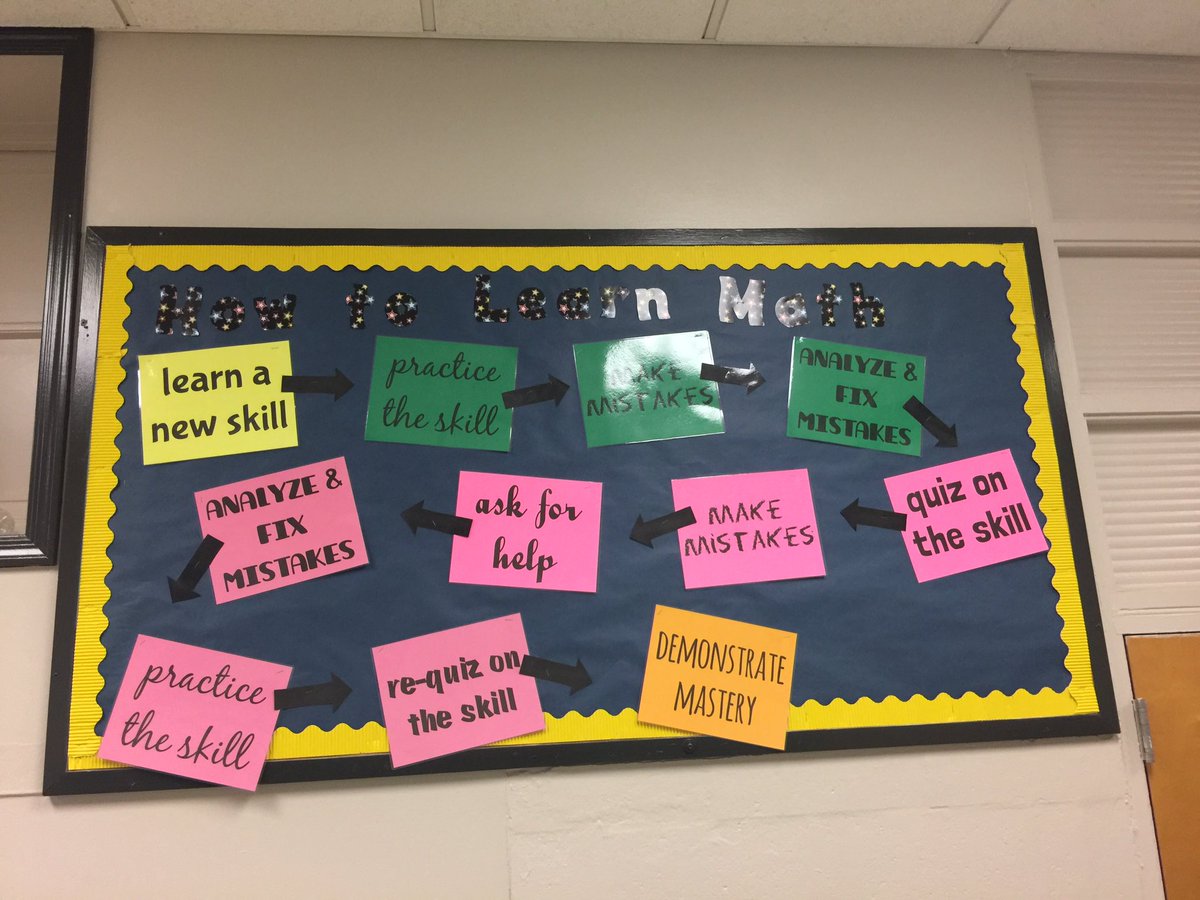 How to Learn Math
learn a
new skill
practice
the skill
MAKE
MISTAKES
ANALYZE &
FIX
MISTAKES
quiz on
the skill
MAKE
MISTAKES
ask for
help
ANALYZE &
FIX
MISTAKES
practice
the skill
re-quiz on
the skill
DEMONSTRATE
MASTERY